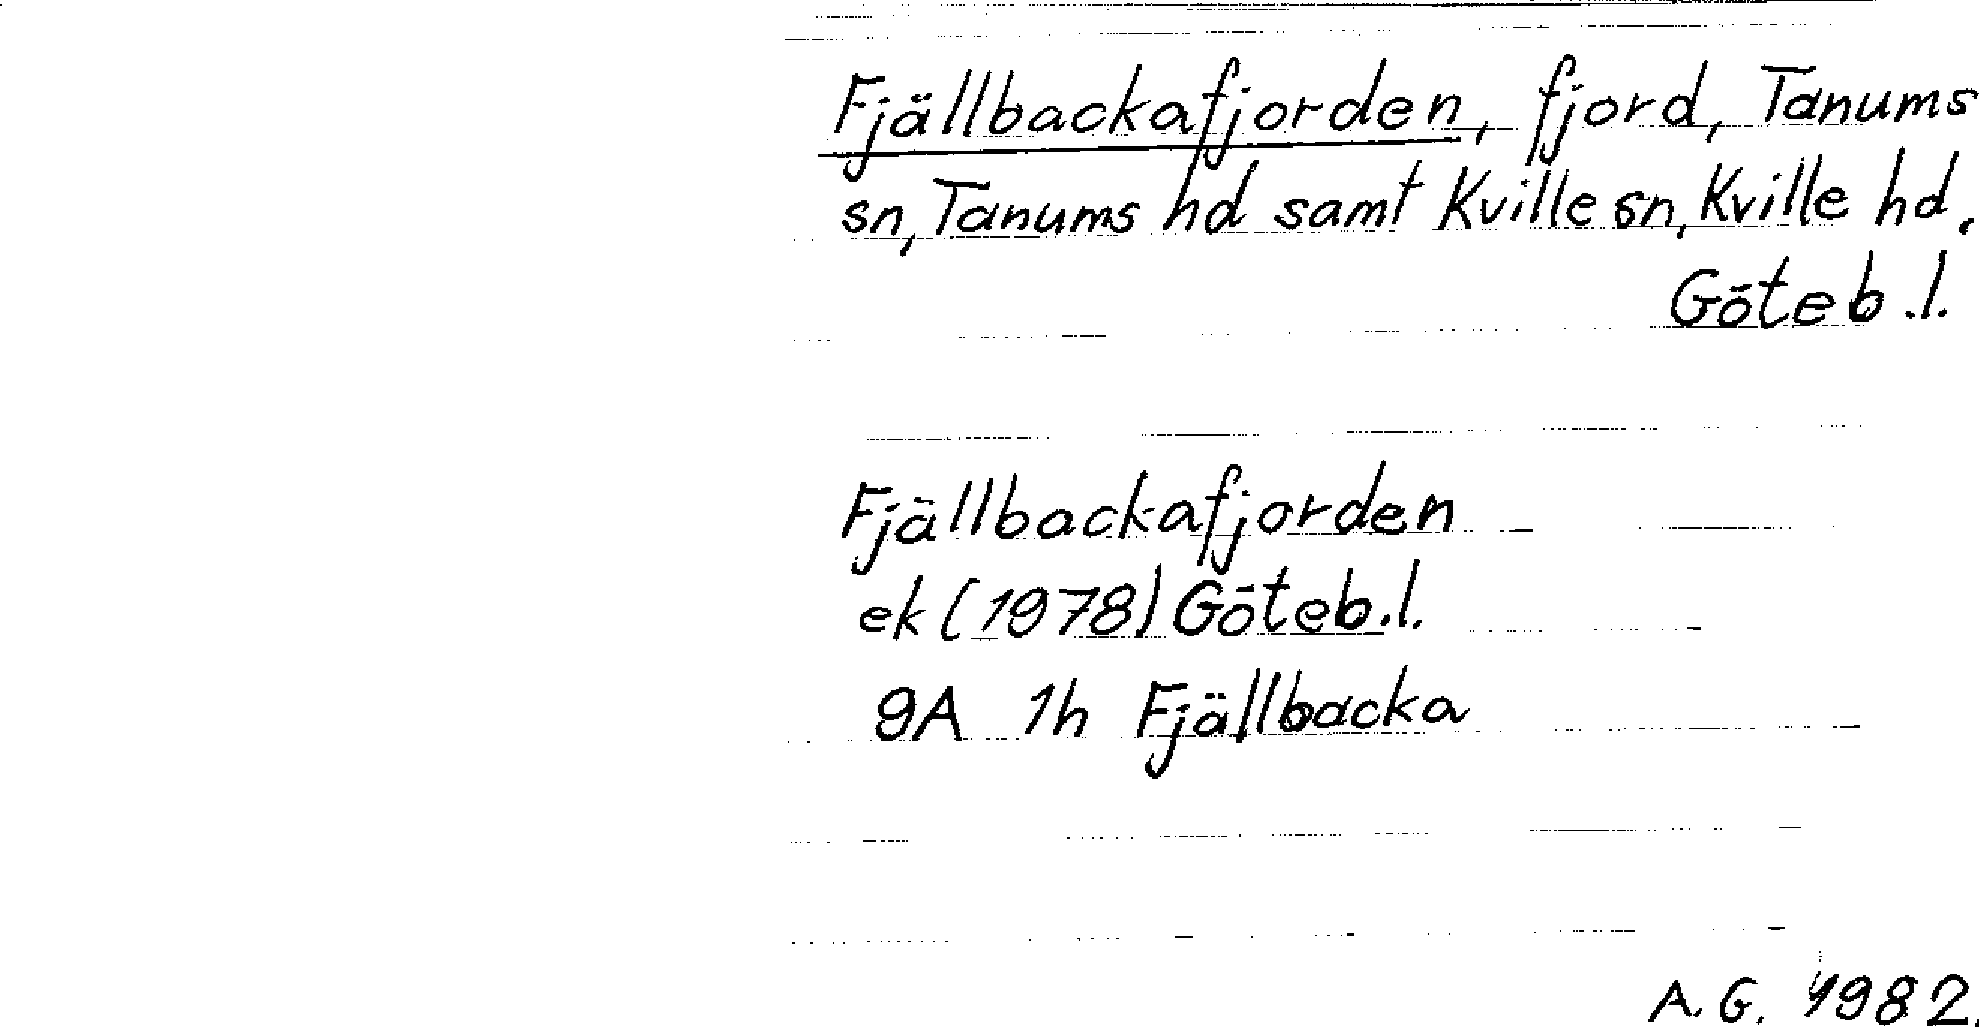 Fjällbackafjorden, fjord, Tanums
sn, Tanums hd samt Kville sn, Kville hd.
Göteb.l.
Fjällbackafjorden
ek (1978) Göteb.l.
9A 1h Fjällbacka
A.G. 1982.